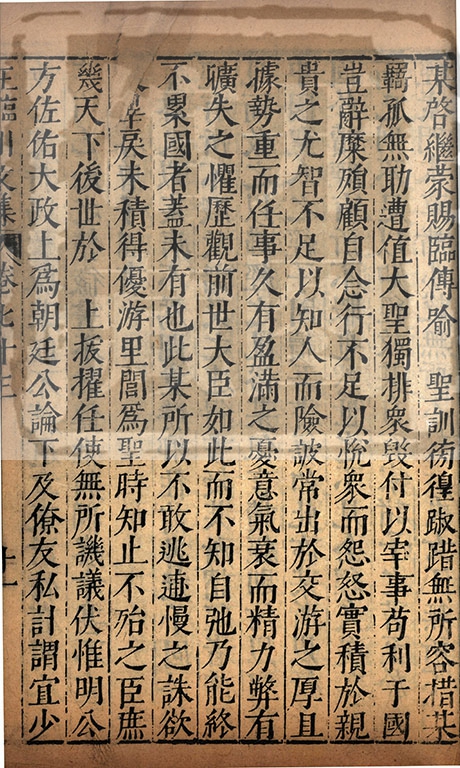 某啓繼蒙賜臨傳喻 聖訓徬徨踧踖無所容措某
羇孤無助遭值大聖獨排衆毀付以宰事苟利于國
豈辭糜殞顧自念行不足以悅衆而怨怒實積於親
貴之尤智不足以知人而險詖常出於交游之厚且
據勢重而任事久有盈滿之憂意氣衰而精力弊有
曠失之懼歷觀前世大臣如此而不知自弛乃能終
不累國者蓋未有也此某所以不敢逃逋慢之誅欲
辠戾未積得優游里閭爲聖時知止不殆之臣庶
幾天下後世於 上拔擢任使無所譏議伏惟明公
方佐佑大政上爲朝廷公論下及僚友私計謂宜少
王臨川文集 卷七十三 十一